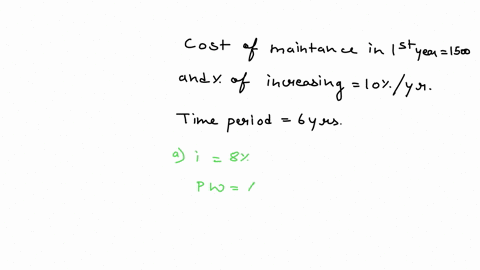 Cost of maintance in 1st year = 1500
and % of increasing = 10% / yr.
Time period = 6 yrs.
a) i = 8%
PW =